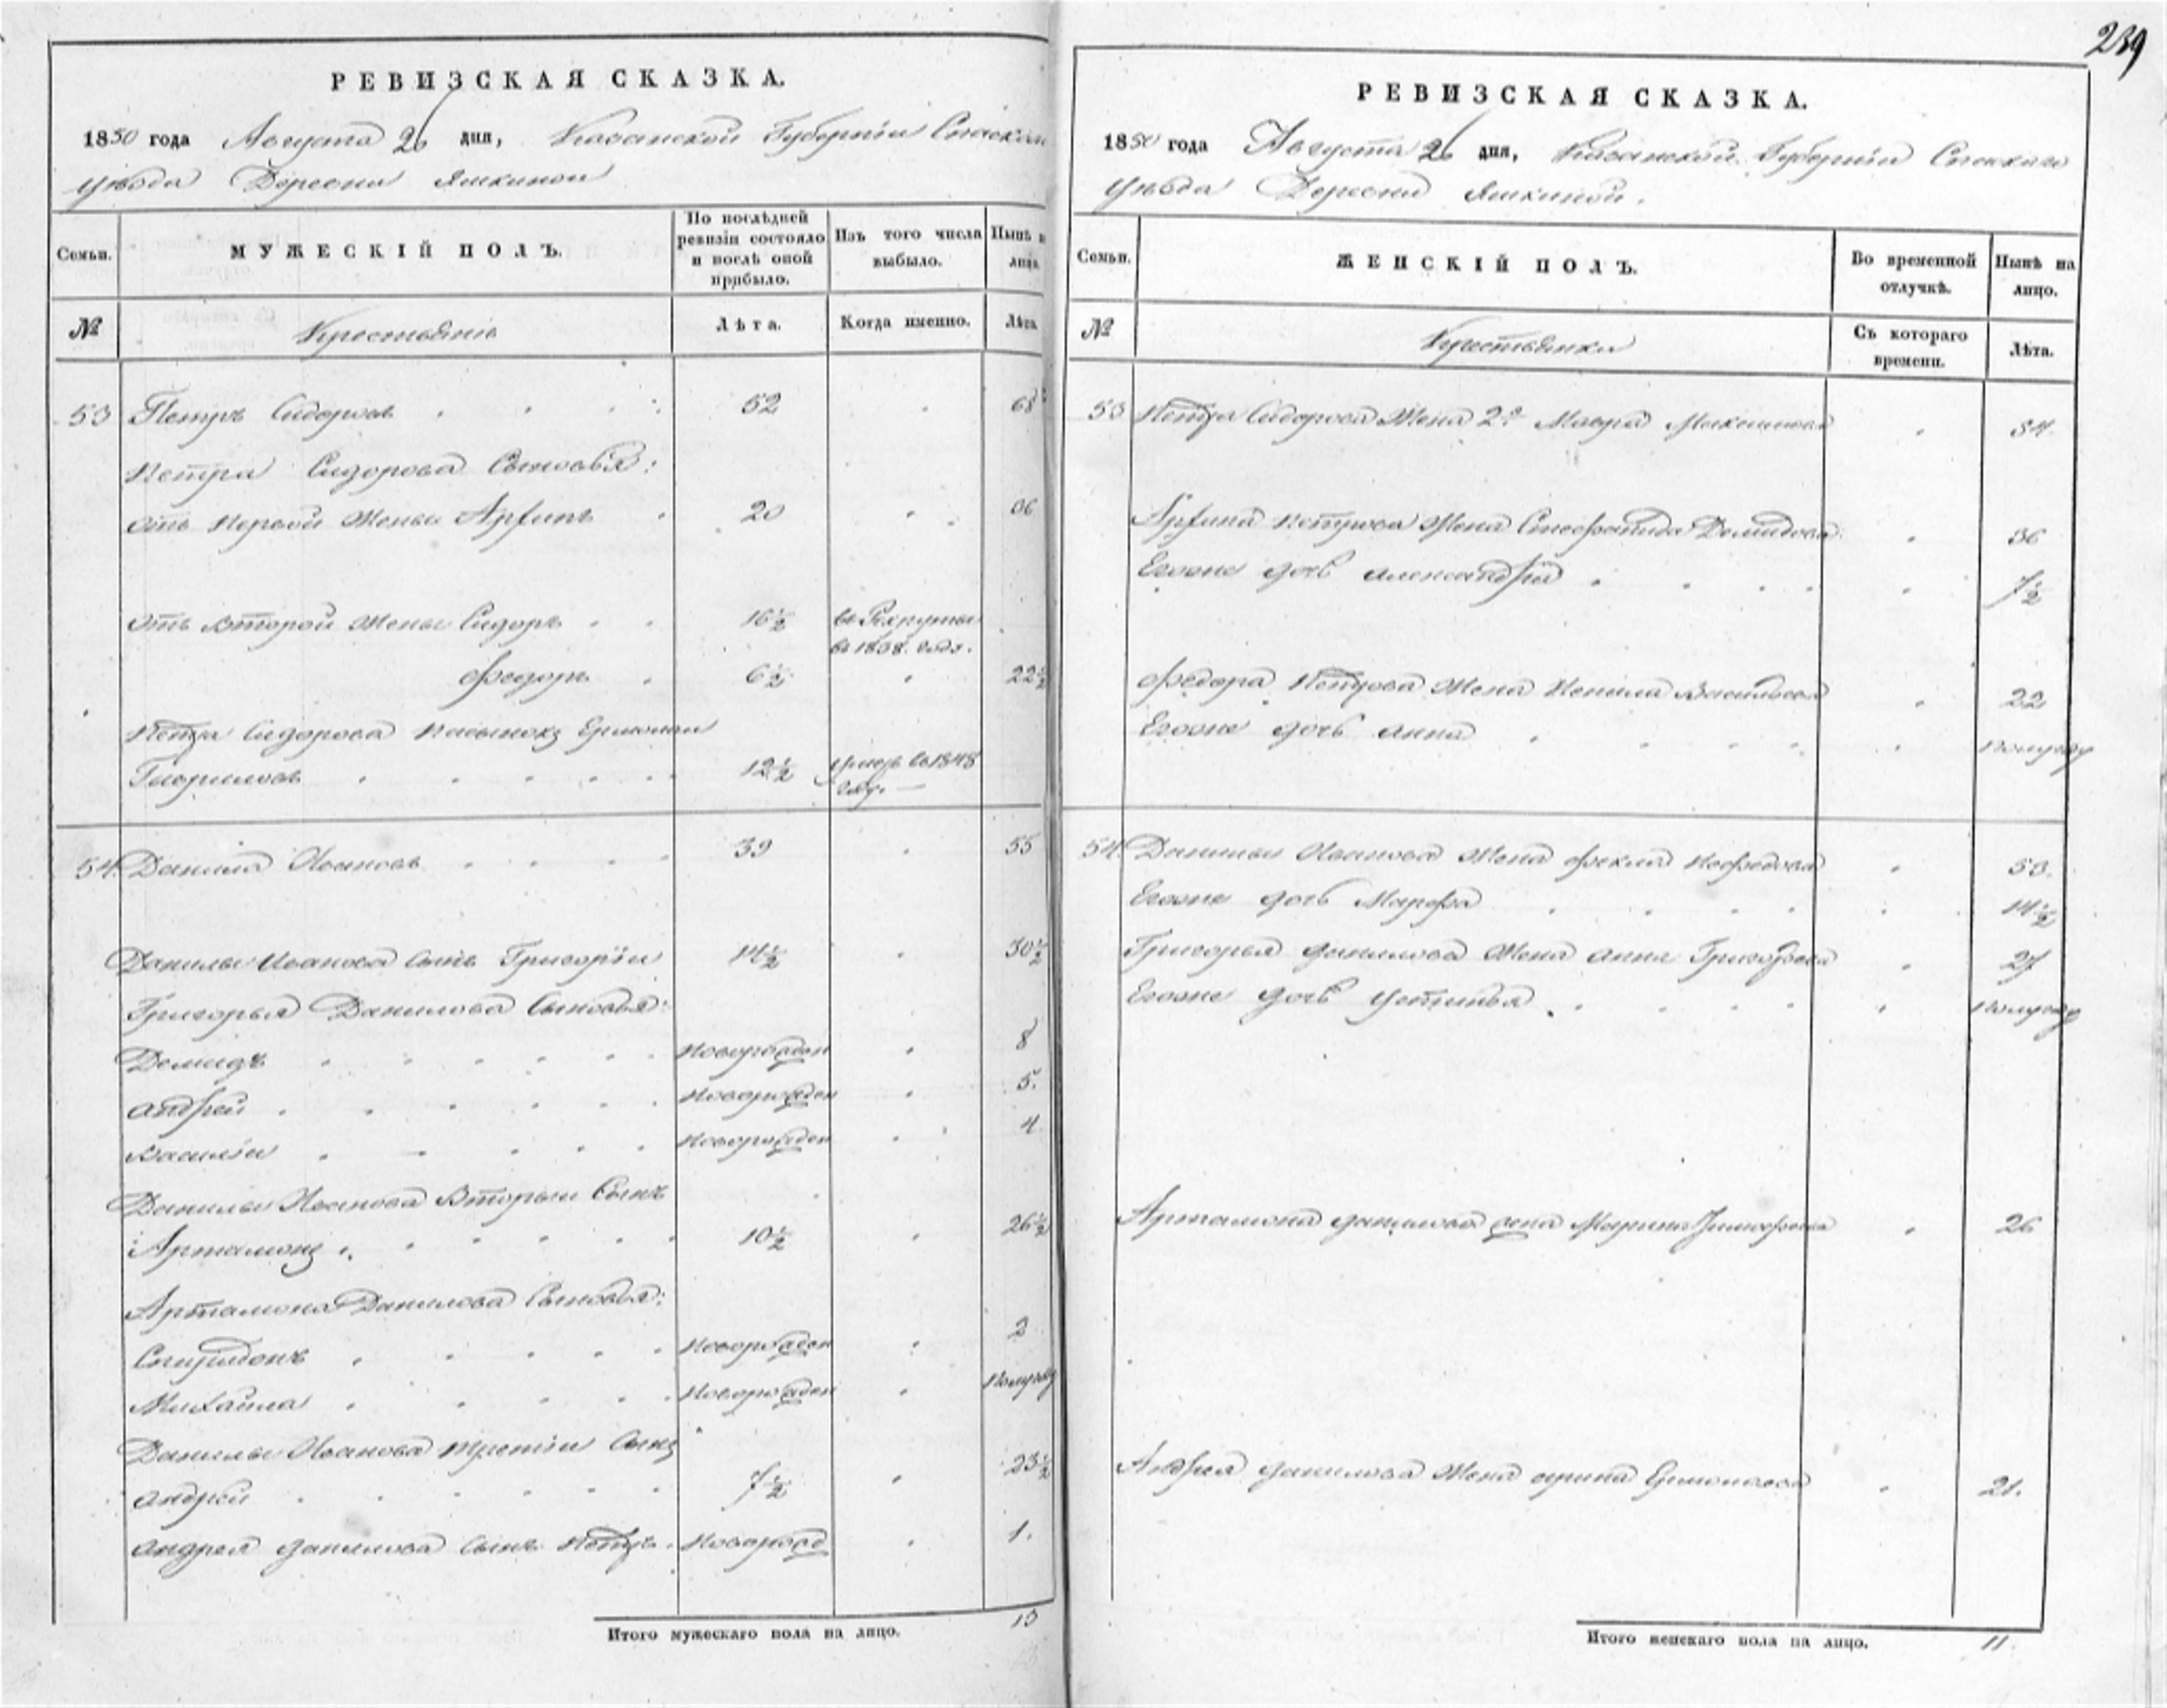 239
РЕВИЗСКАЯ СКАЗКА.
1850 года Августа 26 дня, Казанской Губерніи Спаскаго
уѣзда Деревни Яшкиной
Семьи. МУЖЕСКІЙ ПОЛЪ. По послѣдней ревизіи состояло и послѣ оной прибыло. Изъ того числа выбыло. Нынѣ на лицо.
№ Крестьянѣ Лѣта. Когда именно. Лѣта
53 Петръ Сидоровъ 52 68
Петра Сидорова Сыновья:
отъ Первой Жены Архипъ 20 36
отъ второй Жены Сидоръ 16½ въ Рекруты
въ 1838 годѣ.
Федоръ 6½ 22½
Петра Сидорова Пасынокъ Ермолай
Гавриловъ 12½ умеръ въ 1848
году.
54 Данила Ивановъ 39 55
Данилы Иванова Сынъ Григорій 14½ 30½
Григорья Данилова Сыновья:
Демидъ Новорожден 8
Андрей Новорожден 5.
Василій Новорожден 4
Данилы Иванова Вторый Сынъ
Артамонъ 10½ 26½
Артамона Данилова Сыновья:
Спиридонъ Новорожден 2
Михайла Новорожден Полугоду
Данилы Иванова третій Сынъ
Андрей 7½ 23½
Андрея Данилова Сынъ Петръ Новорожд 1.
Итого мужескаго пола на лицо. 13
РЕВИЗСКАЯ СКАЗКА.
1850 года Августа 26 дня, Казанской Губерніи Спаскаго
уѣзда Деревни Яшкиной.
Семьи. ЖЕНСКІЙ ПОЛЪ. Во временной отлучкѣ. Нынѣ на лицо.
№ Крестьянки Съ котораго времени. Лѣта.
53 Петра Сидорова Жена 2я Мавра Максимова 54.
Архипа Петрова Жена Степанида Демидова 36
Егоже дочь Александра 7½
Федора Петрова Жена Ненила Васильева 22
Егоже дочь Анна Полугоду
54. Данилы Иванова Жена Фекла Нефедова 53.
Егоже дочь Марфа 14½
Григорья Данилова Жена Анна Григорьева 27
Егоже дочь Устинья Полугоду
Артамона Данилова жена Марина Тимофеева 26
Андрея Данилова Жена Арина Ермолаева 21.
Итого женскаго пола на лицо. 11.